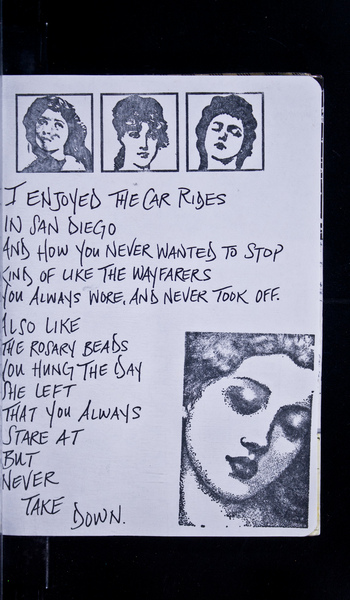 I ENJOYED THE CAR RIDES
IN SAN DIEGO
AND HOW YOU NEVER WANTED TO STOP
KIND OF LIKE THE WAYFARERS
YOU ALWAYS WORE, AND NEVER TOOK OFF.
ALSO LIKE
THE ROSARY BEADS
YOU HUNG THE DAY
SHE LEFT
THAT YOU ALWAYS
STARE AT
BUT
NEVER
TAKE
DOWN.